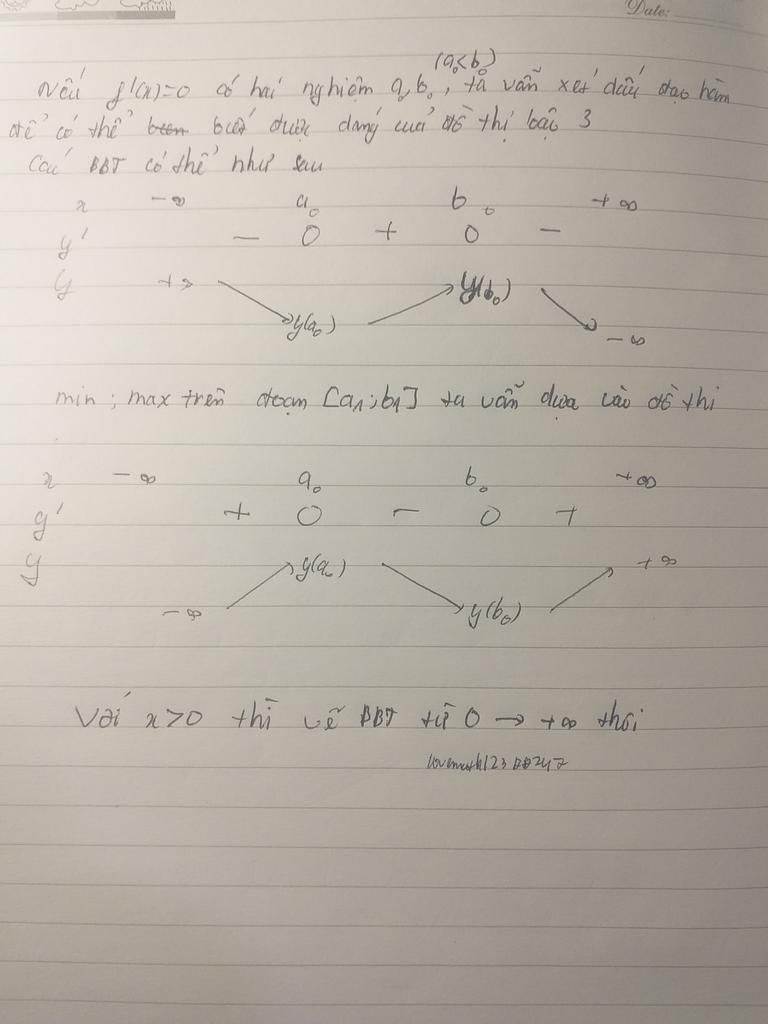 Date:
(a₀<b₀)
Nếu f'(x)=0 có hai nghiệm a₀ b₀, ta vẫn xét dấu đạo hàm
để có thể biết được dáng của đồ thị bậc 3
Các BBT có thể như sau
x -∞ a₀ b₀ +∞
y' - 0 + 0 -
y +∞ y(a₀) y(b₀) -∞
min ; max trên đoạn [a₁;b₁] ta vẫn dựa vào đồ thị
x -∞ a₀ b₀ +∞
y' + 0 - 0 +
y -∞ y(a₀) y(b₀) +∞
Với x>0 thì vẽ BBT từ 0 → +∞ thôi